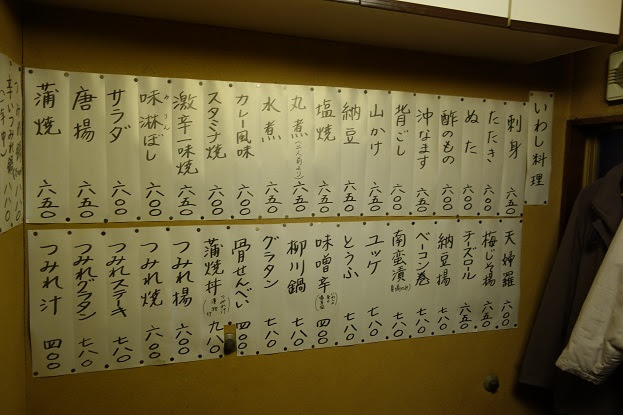 いわし料理
刺身 六五〇
たたき 六〇〇
ぬた 六〇〇
酢のもの 六〇〇
沖なます 六五〇
背ごし 六〇〇
山かけ 六五〇
納豆 六五〇
塩焼 六五〇
丸煮(二人前より) 六五〇
水煮 六〇〇
カレー風味 六〇〇
スタミナ焼 六五〇
激辛味焼 六五〇
味淋ぼし 六〇〇
サラダ 六〇〇
唐揚 六五〇
蒲焼 六五〇
天婦羅 六〇〇
梅じそ揚 六五〇
チーズロール 六五〇
納豆揚 七八〇
ベーコン巻 七八〇
南蛮漬 七八〇
ユッケ 七八〇
とうふ 七八〇
味噌辛 四〇〇
柳川鍋 七八〇
グラタン 七八〇
骨せんべい 四〇〇
蒲焼丼 九八〇
つみれ揚 六〇〇
つみれ焼 六〇〇
つみれステーキ 七八〇
つみれグラタン 七八〇
つみれ汁 四〇〇